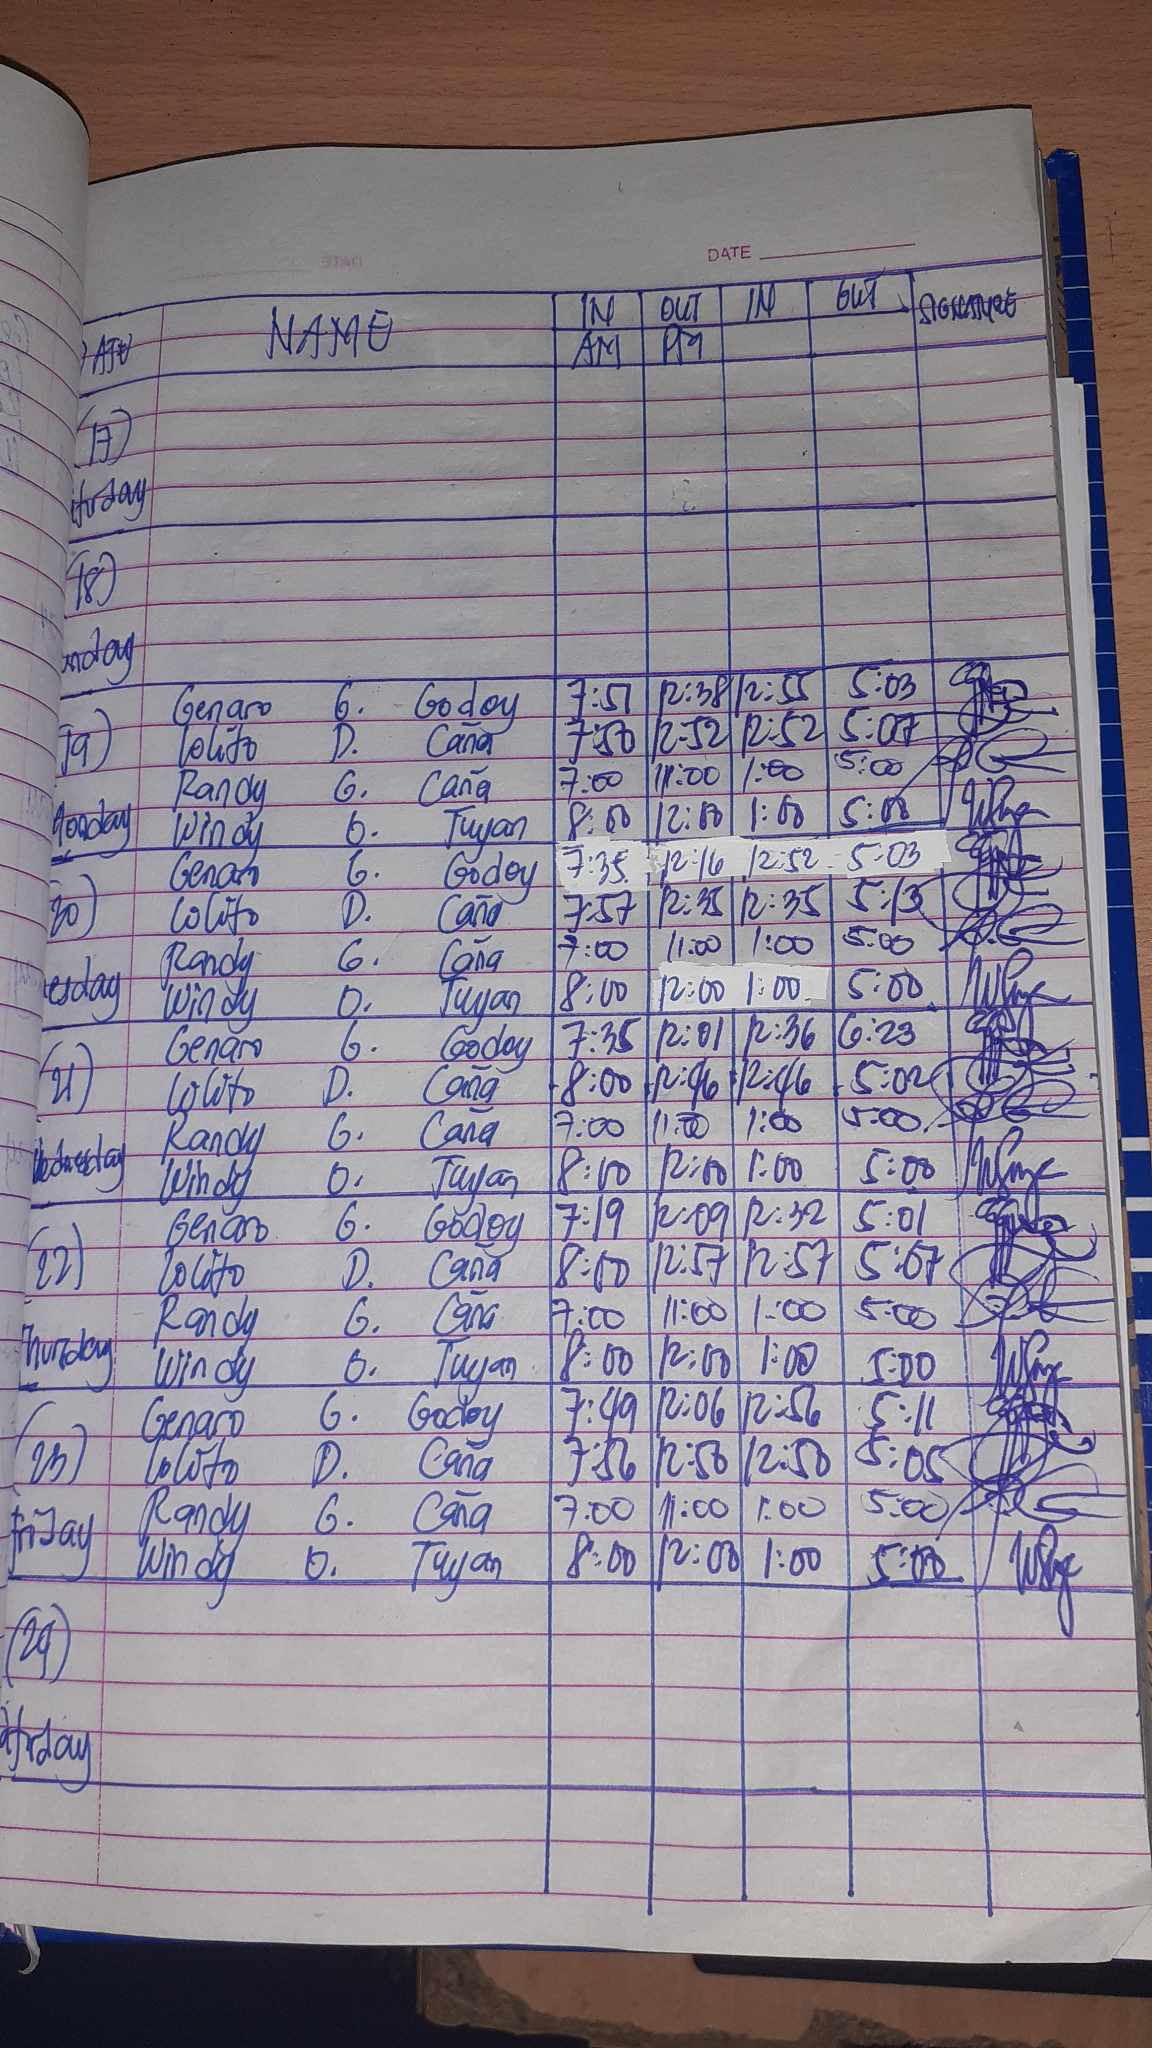 DATE
NAME IN OUT IN OUT SIGNATURE
AM PM
(17)
(18)
Genaro G. Godoy 7:51 12:38 12:55 5:03
Lolito D. Caña 7:50 12:52 12:52 5:07
(19)
Randy G. Caña 7:00 11:00 1:00 5:00
Monday Windy O. Tuyan 8:00 12:00 1:00 5:00
Genaro G. Godoy 7:35 12:16 12:52 5:03
20) Lolito D. Caña 7:57 12:35 12:35 5:13
Randy G. Caña 7:00 11:00 1:00 5:00
esday Windy O. Tuyan 8:00 12:00 1:00 5:00
Genaro G. Godoy 7:35 12:01 12:36 6:23
(21) Lolito D. Caña 8:00 12:46 12:46 5:02
Randy G. Caña 7:00 11:00 1:00 5:00
Wednesday Windy O. Tuyan 8:00 12:00 1:00 5:00
Genaro G. Godoy 7:19 12:09 12:32 5:01
(22) Lolito D. Caña 8:00 12:57 12:57 5:07
Randy G. Caña 7:00 11:00 1:00 5:00
Thursday Windy O. Tuyan 8:00 12:00 1:00 5:00
Genaro G. Godoy 7:49 12:06 12:56 5:11
(23) Lolito D. Caña 7:56 12:50 12:50 5:05
Friday Randy G. Caña 7:00 11:00 1:00 5:00
Windy O. Tuyan 8:00 12:00 1:00 5:00
(24)